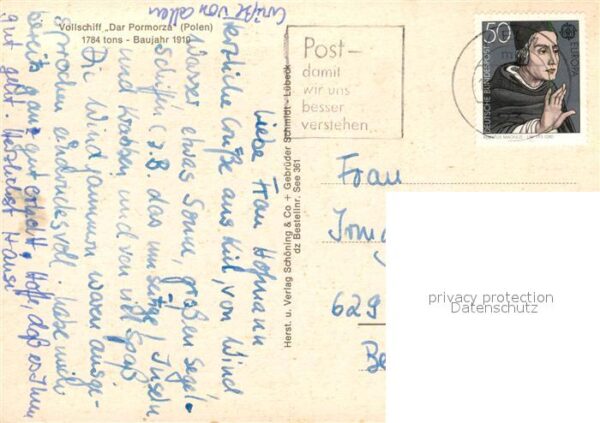 Vollschiff „Dar Pormorza" (Polen)
1784 tons - Baujahr 1910
Liebe Frau Hofmann
Herzliche Grüße aus Kiel, von Wind
Wasser etwas Sonne, großen Segel-
schiffen (z.B. das umseitige) Inseln
und Krabben und von viel Spaß
Die Windjammer waren ausge-
sprochen eindrucksvoll. habe mich
bereits ganz gut erholt. Hoffe, daß es Ihnen
gut geht. Herzlichst
Grüße von allen
Herst. u. Verlag Schöning & Co + Gebrüder Schmidt - Lübeck
dz Bestellnr. See 361
Post -
damit
wir uns
besser
verstehen
50
EUROPA
DEUTSCHE BUNDESPOST
Frau
629
privacy protection
Datenschutz